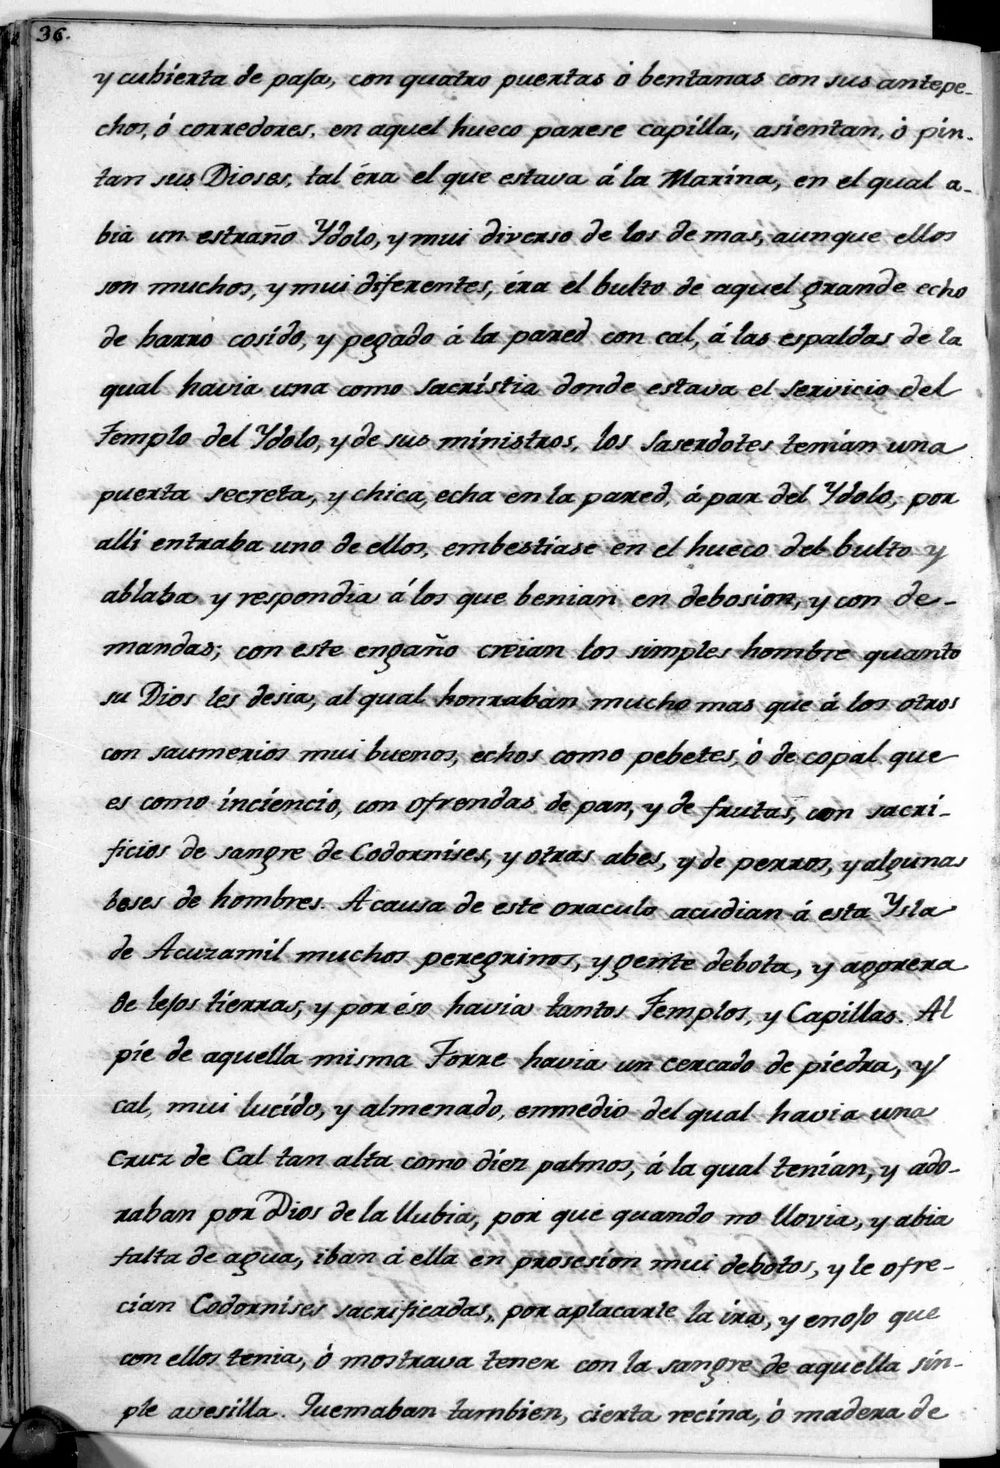 36.
y cubierta de paja, con quatro puertas ó bentanas con sus antepe-
chos, ó corredores, en aquel hueco parese capilla, asientan, ó pin-
tan sus Dioses, tal éra el que estava á la Marina, en el qual a-
bia un estraño Ydolo, y mui diverso de los de mas, aunque ellos
son muchos, y mui diferentes, éra el bulto de aquel grande echo
de barro cosido, y pegado á la pared con cal, á las espaldas de la
qual havia una como sacristia donde estava el servicio del
Templo del Ydolo, y de sus ministros, los Saserdotes tenian una
puerta secreta, y chica, echa en la pared, á par del Ydolo, por
alli entraba uno de ellos, embestiase en el hueco del bulto y
ablaba y respondia á los que benian en debosion, y con de-
mandas; con este engaño creian los simples hombre quanto
su Dios les desia, al qual honraban mucho mas que á los otros
con saumerios mui buenos, echos como pebetes, ó de copal que
es como inciencio, con ofrendas de pan, y de frutas, con sacri-
ficios de sangre de Codornises, y otras abes, y de perros, y algunas
beses de hombres. A causa de este oraculo acudian á esta Ysla
de Acuzamil muchos peregrinos, y gente debota, y agorera
de lejos tierras, y por éso havia tantos Templos, y Capillas. Al
pie de aquella misma Torre havia un cercado de piedra, y
cal, mui lucido, y almenado, enmedio del qual havia una
Cruz de Cal tan alta como diez palmos, á la qual tenian, y ado-
raban por Dios de la llubia, por que quando no llovia, y abia
falta de agua, iban á ella en prosesion mui debotos, y le ofre-
cian Codornises sacrificadas, por aplacarle la ira, y enojo que
con ellos tenia, ó mostrava tener con la sangre de aquella sin-
ple avesilla. Quemaban tambien, cierta recina, ó madera de